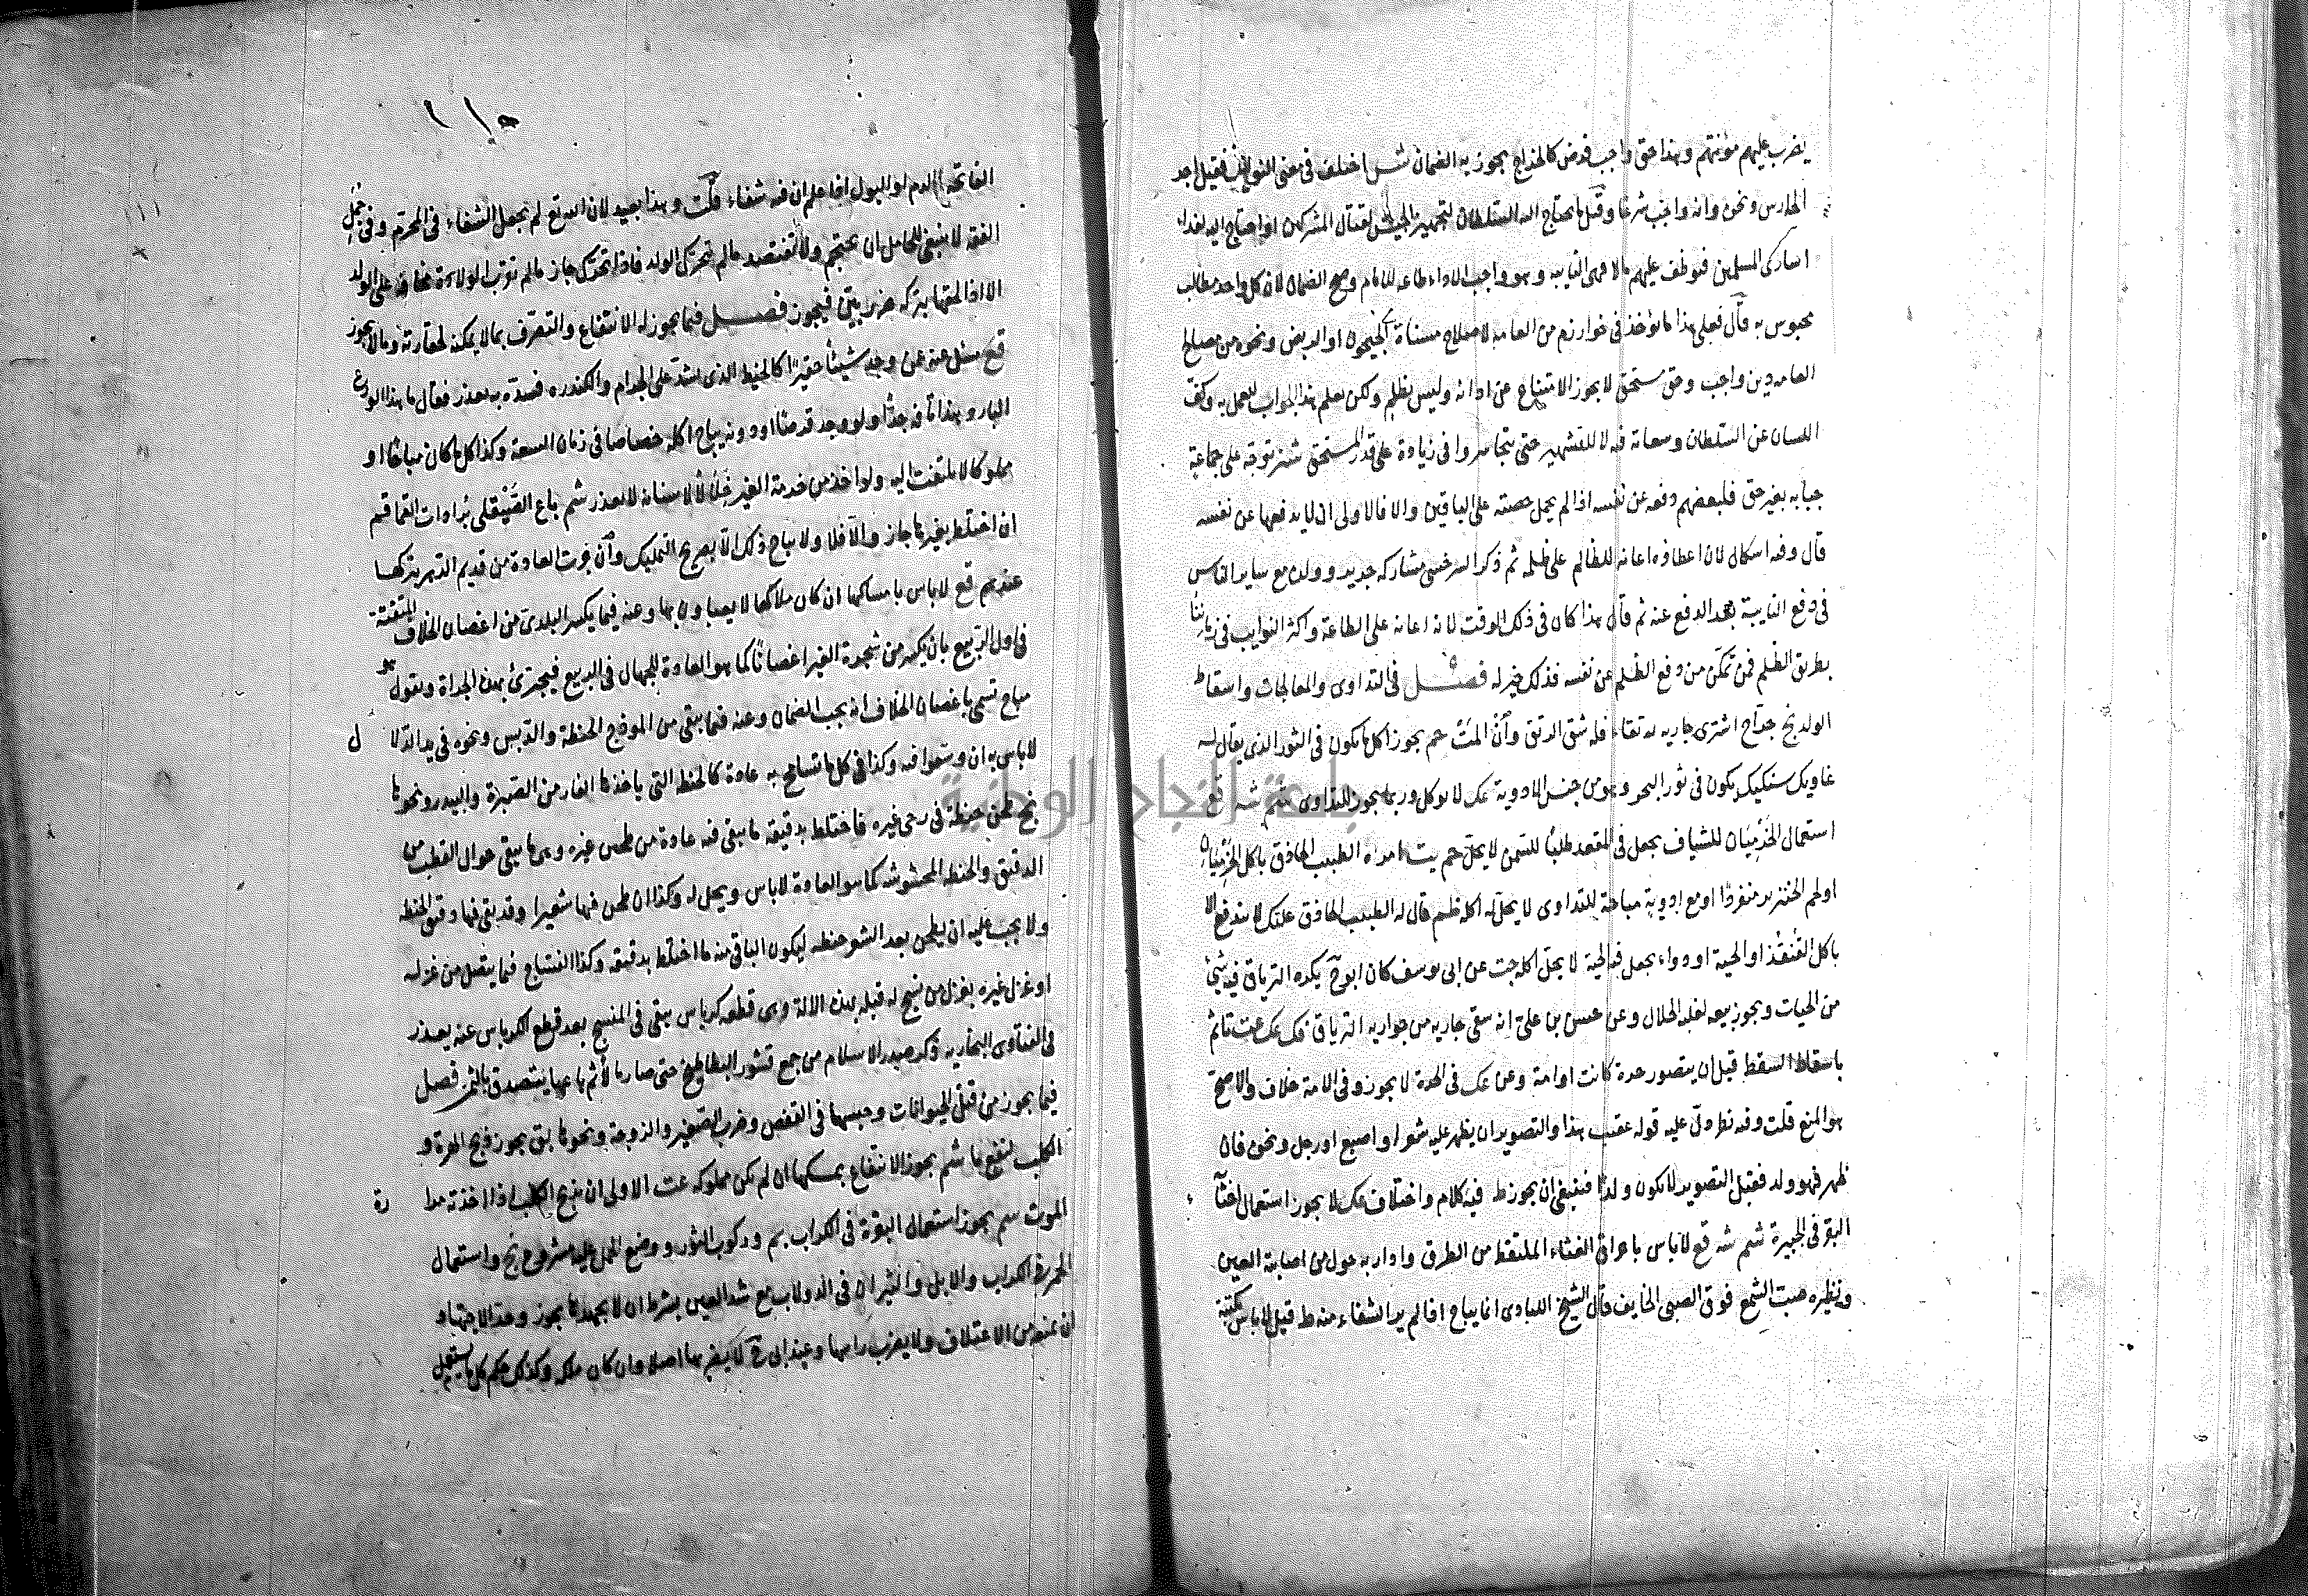 يضرب عليهم مؤنتهم وهذا حق واجب فرض كالخراج يجوز به الضمان اختلف في معنى النوائب فقيل اجر
الحارس ونحوه وانه واجب شرعا وقيل ما يحتاج اليه السلطان لتجهيز الجيش لقتال المشركين او احتاج اليه لفداء
اسارى المسلمين فيوظف عليهم مالا فهى النايبه وهو واجب الاداء طاعه للامام وصح الضمان لان كل واحد مطالب
محبوس به قال فعلى هذا ما يؤخذ في خوارزم من العامه لاصلاح مسناة الجيحون او الربض ونحوه من مصالح
العامه دين واجب وحق مستحق لا يجوز الامتناع عن ادائه وليس بظلم ولكن يعلم هذا الجواب للعمل به وكف
اللسان عن السلطان وسعاته فيه لا للتشهير حتى يتجاسروا في زيادة على قدر المستحق توجه على جماعة
جبايه بغير حق فلبعضهم دفعه عن نفسه اذا لم يحمل حصته على الباقين والا فالاولى ان لا يدفعها عن نفسه
قال وفيه اشكال لان اعطاءه اعانه للظالم على ظلمه ثم ذكر السرخسي مشاركه جرير وولده مع ساير الناس
في دفع النايبة بعد الدفع عنه ثم قال هذا كان في ذلك الوقت لانه اعانه على الطاعة واكثر النوايب في زماننا
بطريق الظلم فمن تمكن من دفع الظلم عن نفسه فذلك خير له فصل في التداوى والمعالجات واسقاط
الولد نج جراح اشترى جاريه رتقاء فله شق الرتق وان المت حم يجوز اكل ما يكون في الثور الذى يقال له
غاويك سنكيك يكون في ثور البحر وهو من جنس الادوية عك لا يوكل وربما يجوز للتداوى شم شه قع
استعمال للشياف يجعل في المقعد طلبا للسمن لا يحل حم يت امراه الطبيب الحاذق باكل
او لحم الخنزير منفردا او مع ادوية مباحة للتداوى لا يحل له اكله ظم قال له الطبيب الحاذق علتك لا تندفع الا
باكل القنفذ او الحية او دواء يجعل فيه الحية لا يحل اكله جت عن ابى يوسف كان ابو ح يكره الترياق فيه شئ
من الحيات ويجوز بيعه لغلبه الحلال وعن حسن بن على انه سقى جاريه من جواريه الترياق عك عت تاثم
باسقاط السقط قبل ان يتصور حرة كانت او امة وعن عك في الحرة لا يجوز وفي الامة خلاف والاصح
هو المنع قلت وفيه نظر دل عليه قوله عقيب هذا والتصوير ان يظهر عليه شعر او اصبع او رجل ونحوه فان
ظهر فهو ولد فقبل التصوير لا يكون ولدا فينبغى ان يجوز ط فيه كلام واختلاف عك لا يجوز استعمال اخثا
البقر في الجبيرة شم شه قع لا باس باحراق الغثاء الملتقط من الطرق وادار به حول من اصابته العين
ونظيره صب الشمع فوق الصبى الخايف قال الشيخ اللبادى انما يباح اذا لم ير الشفاء منه ط قيل لا باس بكتبة
١١٥
١١١
الفاتحة بالدم او البول اذا علم ان فيه شفاء قلت وهذا بعيد لان الله تع لم يجعل الشفاء في المحرم وفي جمل
الفقه لا ينبغى للحامل ان تحتجم ولا تفتصد ما لم تحرك الولد فاذا تحرك جاز ما لم تقرب الولادة مخافة على الولد
الا اذا لحقها بتركه ضرر بين فيجوز فصل فيما يجوز له الانتفاع والتصرف بما لا يمكنه لحقارته وما لا يجوز
قع سئل عنه عن وجد شيئا حقيرا كالخيط الذى يشد على والكندره فشده به يعذر فقال ما هذا الورع
البارد وهذا تافه جدا ولو وجد قرصا او دونه يباح اكله خصاصا في زمان السعة وكذا كل ما كان مباحا او
مملوكا لا يلتفت اليه ولو اخذ من خدمة الغير خلالا لاسنانه لا يعذر شم باع الصيقلى برادات القماقم
ان اختلط بغيرها جاز والا فلا ولا يباح ذلك الا بصريح التمليك وان جرت العادة من قديم الدهر بتركها
عندهم قع لا باس بامساكها ان كان ملاكها لا يعباون بها وعنه فيما يكسر البلدى من اغصان الخلاف المتفتتة
في اول الربيع بان يكسر من شجرة الغير اغصانا كما هو العادة للجهال في الربيع فيجترئ بهذه الجراة ويقول هو
مباح تسمى باغصان الخلاف انه يجب الضمان وعنه فيما يبقى من الموزج الحنطة والدبس ونحوه في يد الدلا ل
لا باس به ان وسعوا فيه وكذا في كل ما تسامح به عادة كالحنطه التى ياخذها الفار من الصبرة والبيدر ونحوها
نج طحن حنطة في رحى غيره فاختلط بدقيقه ما يبقى فيه عادة من طحين غيره وهى ما يبقى حوال القطب من
الدقيق والحنطه المحشوشه كما هو العادة لا باس ويحل له وكذا ان طحن فيها شعيرا وقد بقى فيها دقيق الحنطه
ولا يجب عليه ان يطحن بعد الشو حنطه ليكون الباقى منه ما اختلط بدقيقه وكذا النساج فيما يتصل من غزله
او غزل غيره بغزل من نسج له قبله بهذه الالة وهى قطعه كرباس يبقى في المنسج بعد قطع الكرباس عنه يعذر
في الفتاوى البخاريه ذكر صدر الاسلام من جمع قشور البطاطيخ حتى صار مالا ثم باعها يتصدق بالثمن فصل
فيما يجوز من قتل الحيوانات وحبسها في القفص وضرب الصغير والزوجة ونحوها بق يجوز ذبح الهرة و
الكلب لنفع ما شم يجوز الانتفاع بمسكها ان لم تكن مملوكه عت الاولى ان يذبح الكلب اذا اخذته مرا رة
الموت سم يجوز استعمال البقرة في الكراب بم وركوب الثور ووضع الحمل عليه مشروع نج واستعمال
الحمر في الكراب والابل والثيران في الدولاب مع شد العين بشرط ان لا يجهدها يجوز وحد الاجتهاد
ان يمنعه من الاعتلاف ولا يضرب راسها وعند ابى ح لا يضربها اصلا وان كان ملكه وكذلك حكم كل ما يستعمل
جامعة النجاح الوطنية